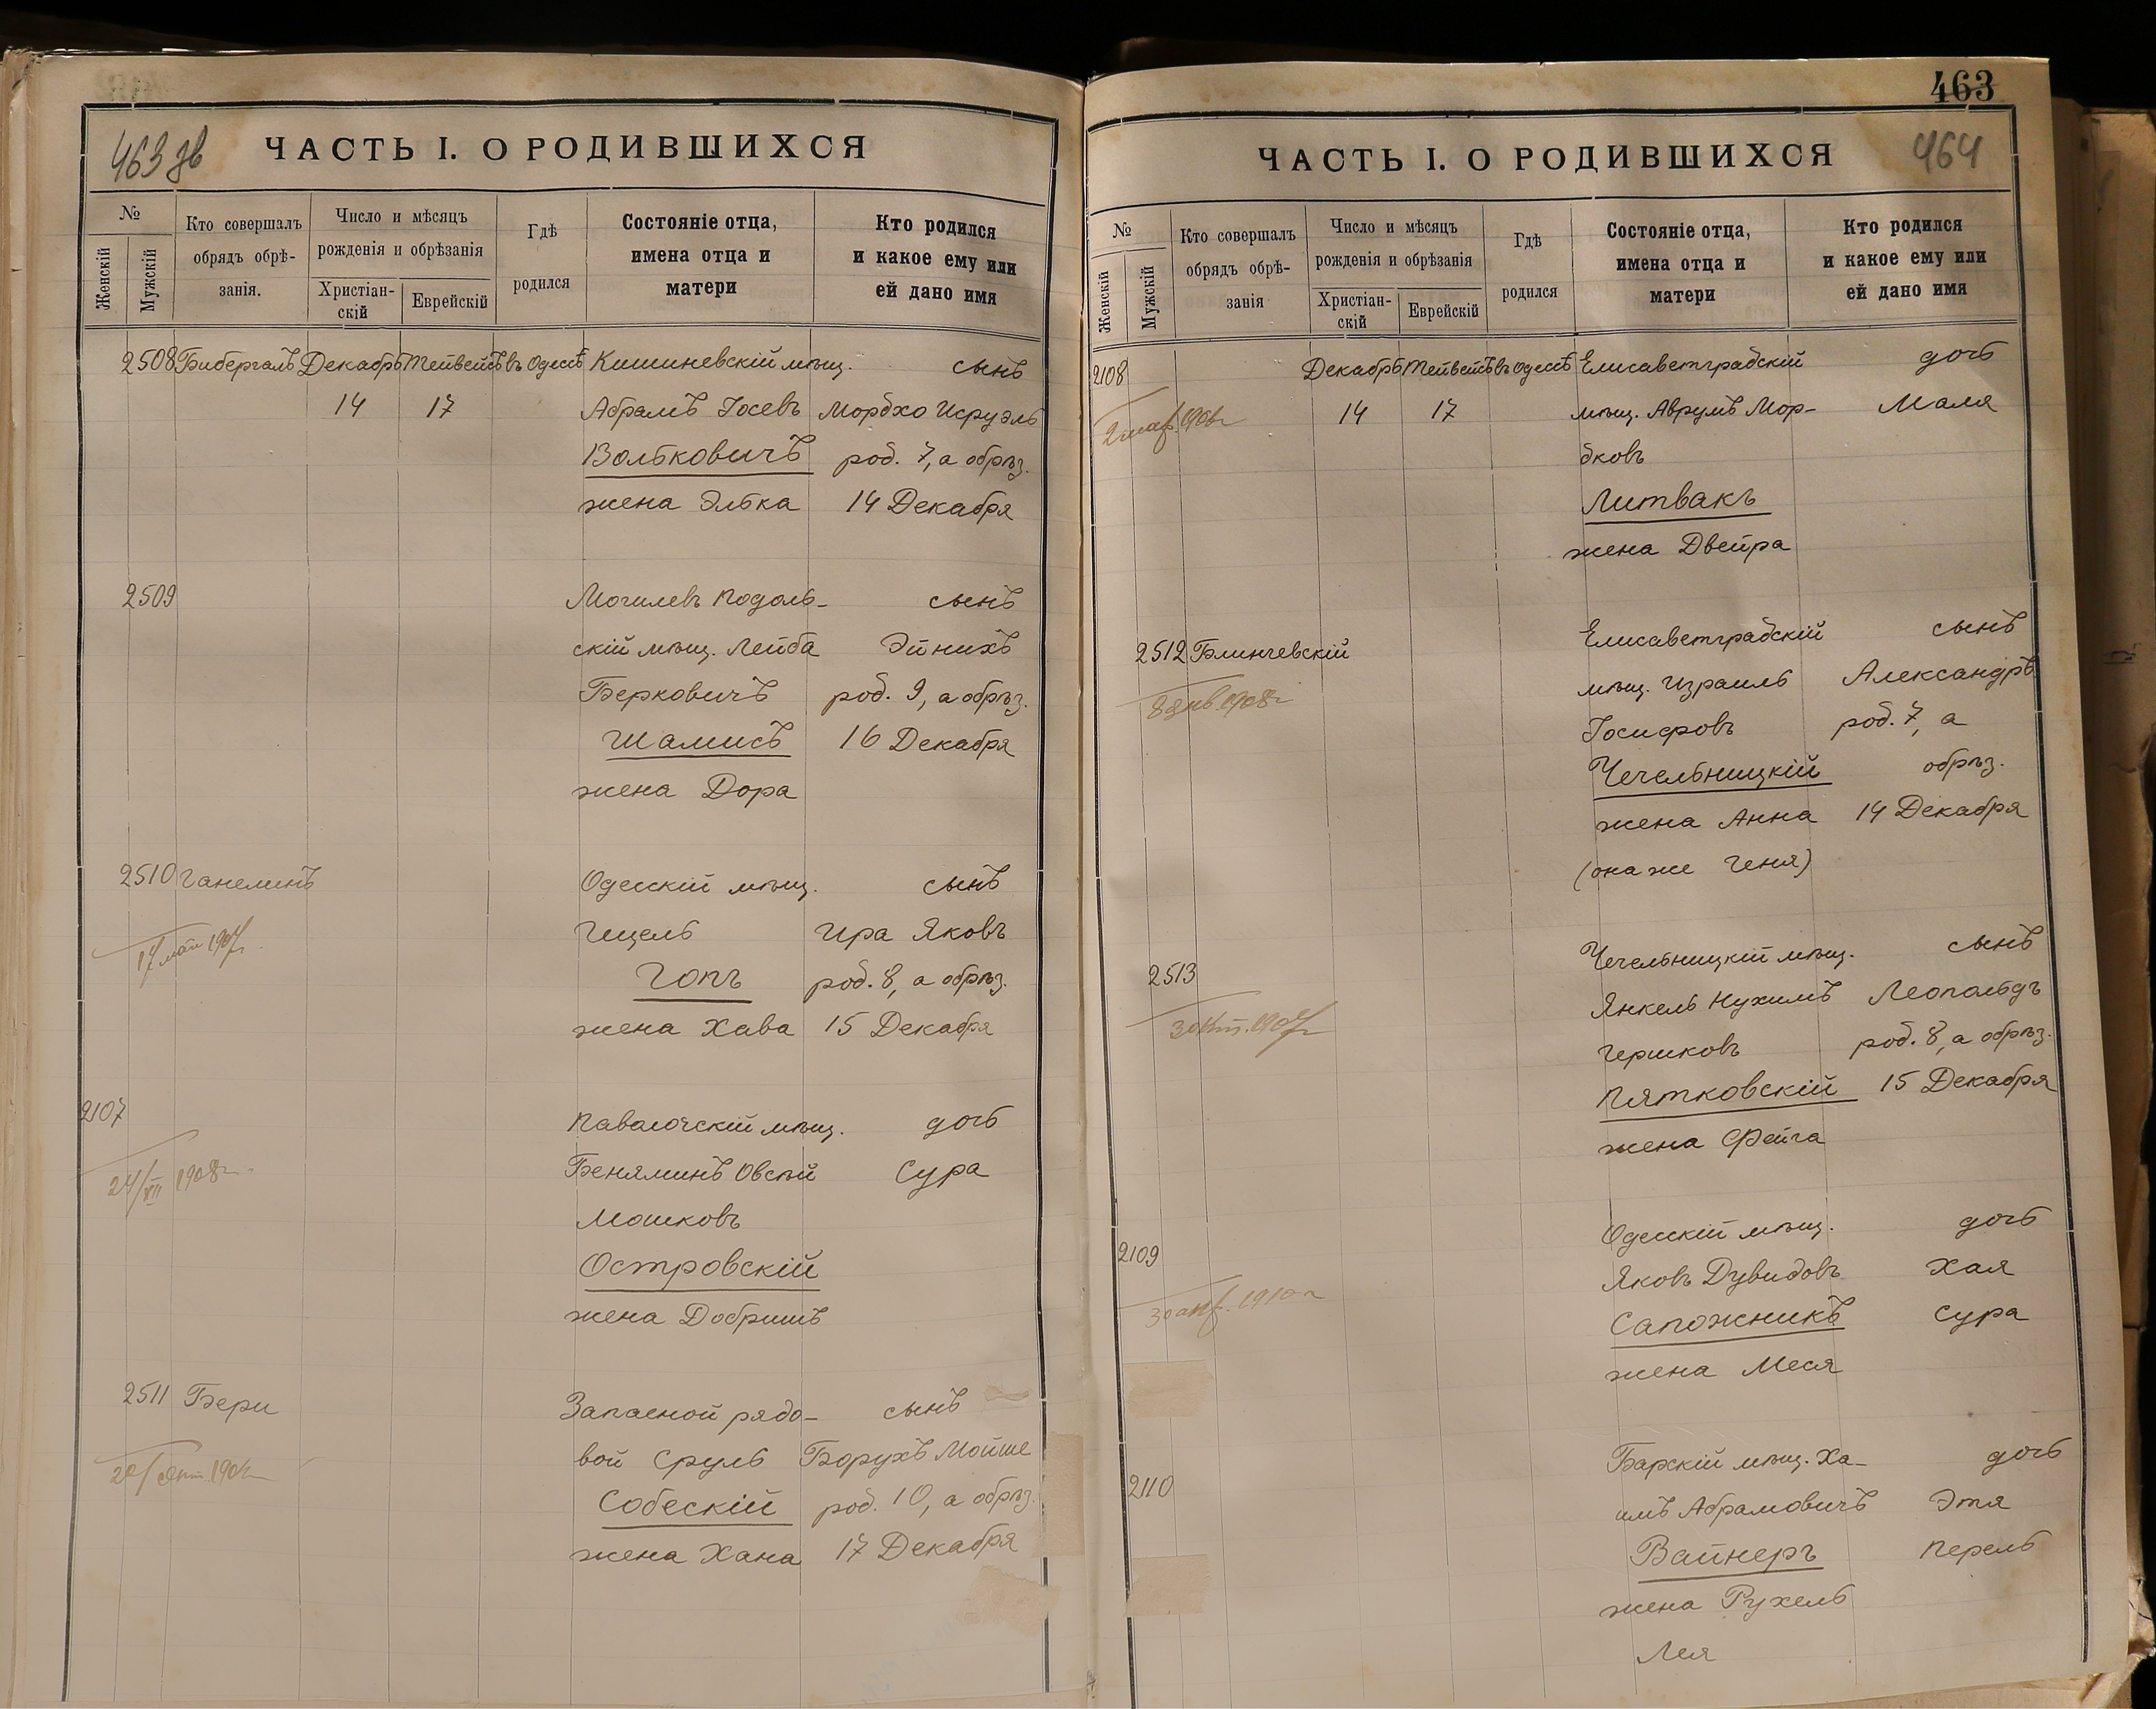 463 зв
ЧАСТЬ I. О РОДИВШИХСЯ
№
Женскій
Мужскій
Кто совершалъ
обрядъ обрѣ-
занія.
Число и мѣсяцъ
рожденія и обрѣзанія
Христіан-
скій
Еврейскій
Гдѣ
родился
Состояніе отца,
имена отца и
матери
Кто родился
и какое ему или
ей дано имя
2508 Бибергалъ Декабрь Тейвейсъ въ Одессѣ Кишиневскій мѣщ. сынъ
14 17 Абрамъ Іосевъ Мордхо Исруэль
Вольковичъ род. 7, а обрѣз.
жена Элька 14 Декабря
2509 Могилевъ Подоль- сынъ
скій мѣщ. Лейба Эйнихъ
Берковичъ род. 9, а обрѣз.
Шамисъ 16 Декабря
жена Дора
2510 Ганелинъ Одесскій мѣщ. сынъ
17 мая 1907г. Гицель Ира Яковъ
Гопъ род. 8, а обрѣз.
жена Хава 15 Декабря
2107 Паволочскій мѣщ. дочь
24/VII 1908г. Беняминъ Овсѣй Сура
Мошковъ
Островскій
жена Добришъ
2511 Бери Запасной рядо- сынъ
вой Сруль Борухъ Мойше
Собескій род. 10, а обрѣз.
жена Хана 17 Декабря
463
ЧАСТЬ I. О РОДИВШИХСЯ 464
№
Женскій
Мужскій
Кто совершалъ
обрядъ обрѣ-
занія
Число и мѣсяцъ
рожденія и обрѣзанія
Христіан-
скій
Еврейскій
Гдѣ
родился
Состояніе отца,
имена отца и
матери
Кто родился
и какое ему или
ей дано имя
2108 Декабрь Тейвейсъ въ Одессѣ Елисаветградскій дочь
14 17 мѣщ. Аврумъ Мор- Маля
дковъ
Литвакъ
жена Двейра
2512 Блинчевскій Елисаветградскій сынъ
8 янв. 1908г мѣщ. Израиль Александръ
Іосифовъ род. 7, а
Чечельницкій обрѣз.
жена Анна 14 Декабря
(она же Геня)
2513 Чечельницкій мѣщ. сынъ
Янкель Нухимъ Леопольдъ
Гершковъ род. 8, а обрѣз.
Пятковскій 15 Декабря
жена Фейга
2109 Одесскій мѣщ. дочь
30 апр. 1910г Яковъ Дувидовъ Хая
Сапожникъ Сура
жена Меся
2110 Барскій мѣщ. Ха- дочь
имъ Абрамовичъ Этя
Вайнеръ Перель
жена Рухель
Лея